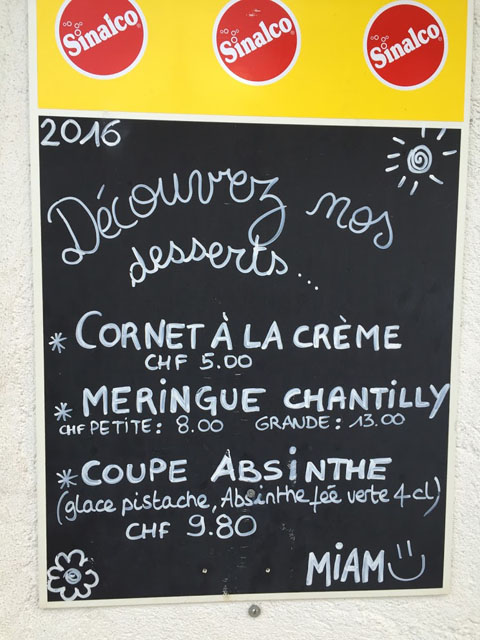 Sinalco Sinalco Sinalco
2016
Découvrez nos
desserts...
* CORNET À LA CRÈME
CHF 5.00
* MERINGUE CHANTILLY
CHF PETITE: 8.00 GRANDE: 13.00
* COUPE ABSINTHE
(glace pistache, Absinthe fée verte 4 cl)
CHF 9.80
MIAM